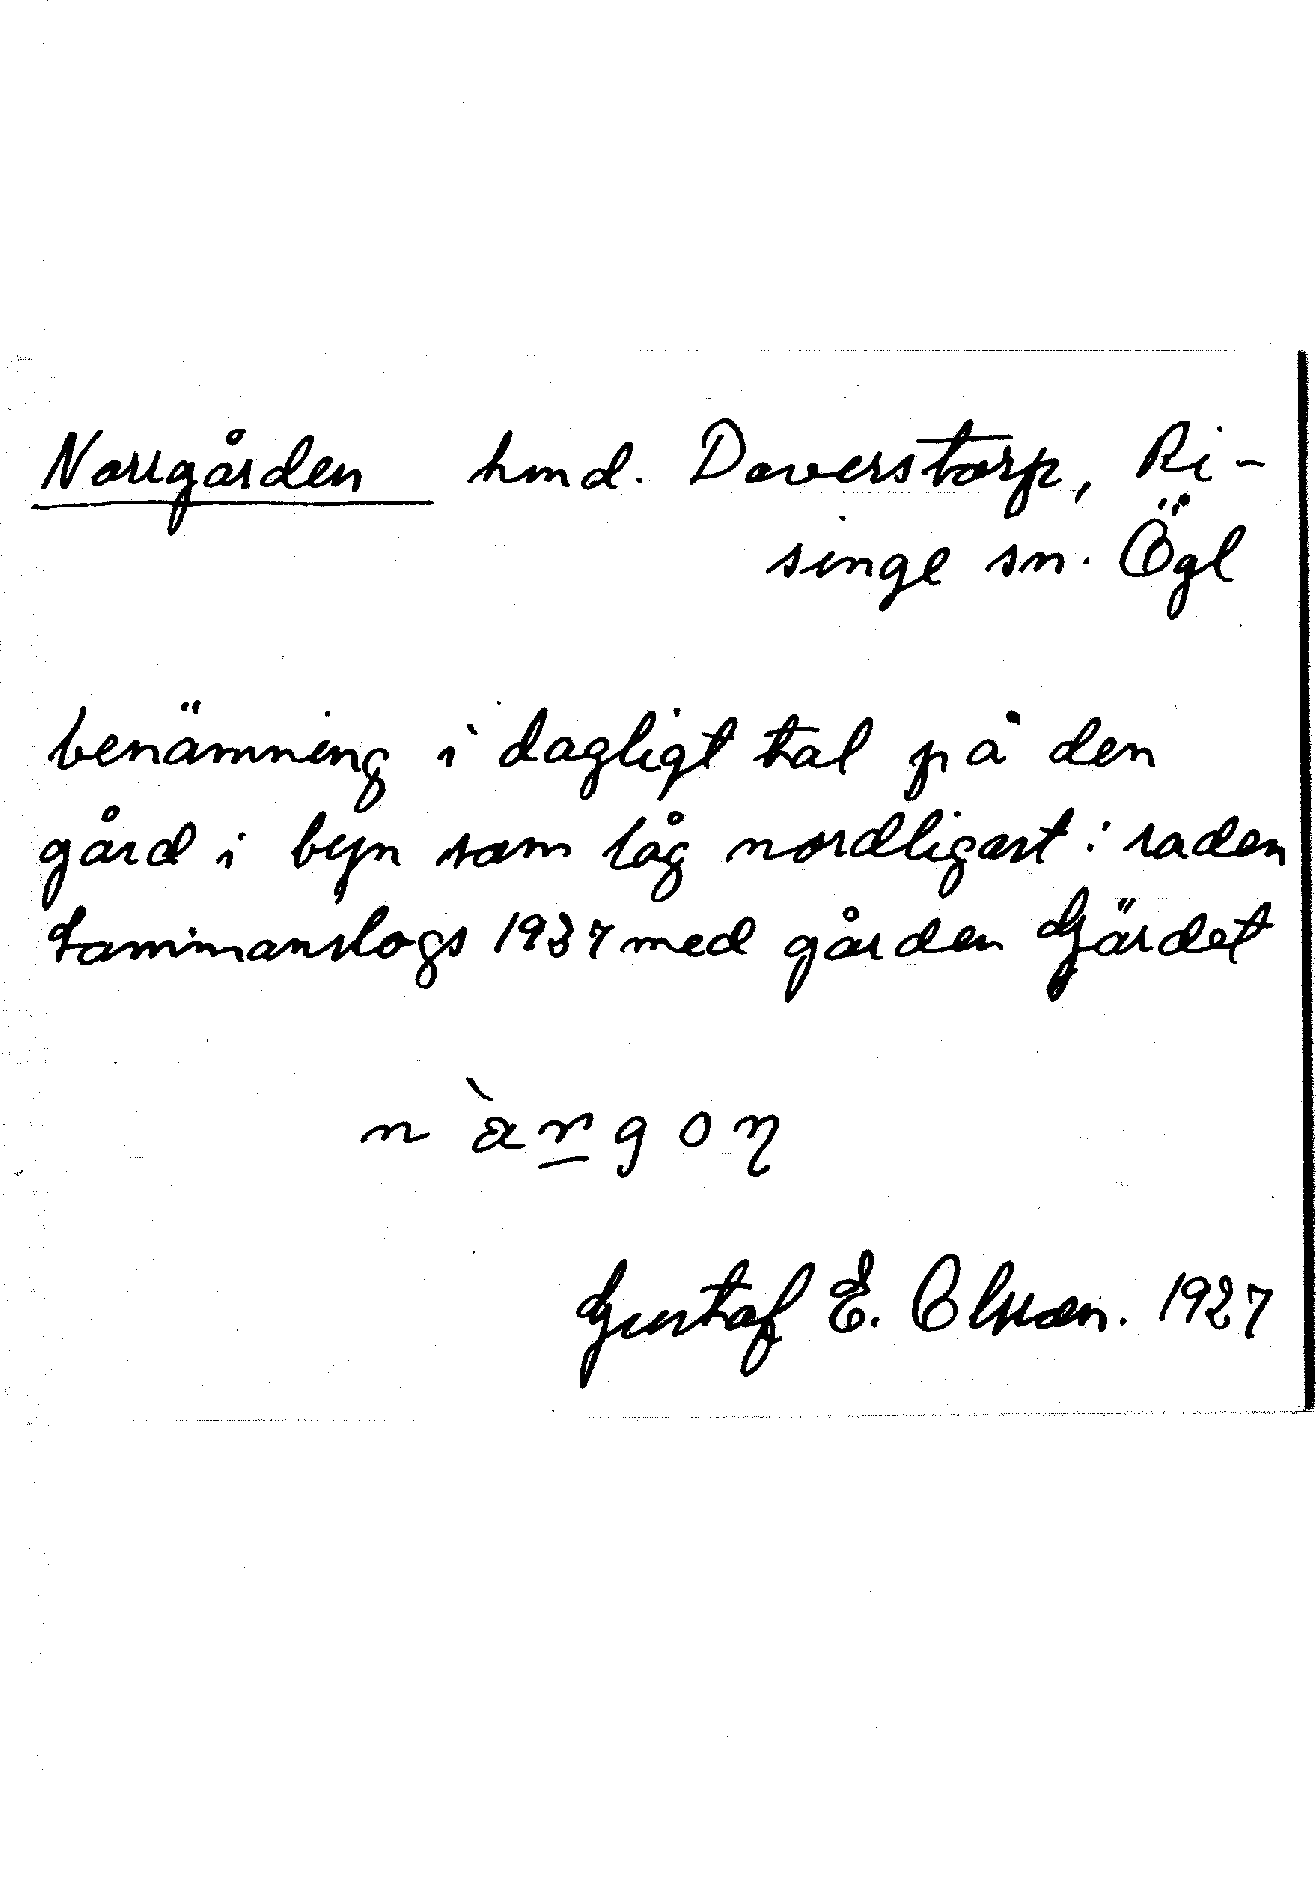 Norrgården hmd. Daverstorp, Ri-
singe sn. Ögl
benämning i dagligt tal på den
gård i byn som låg nordligast i raden
Sammanslogs 1937 med gården Gärdet
ǹargoη
Gustaf E. Olsson. 1927